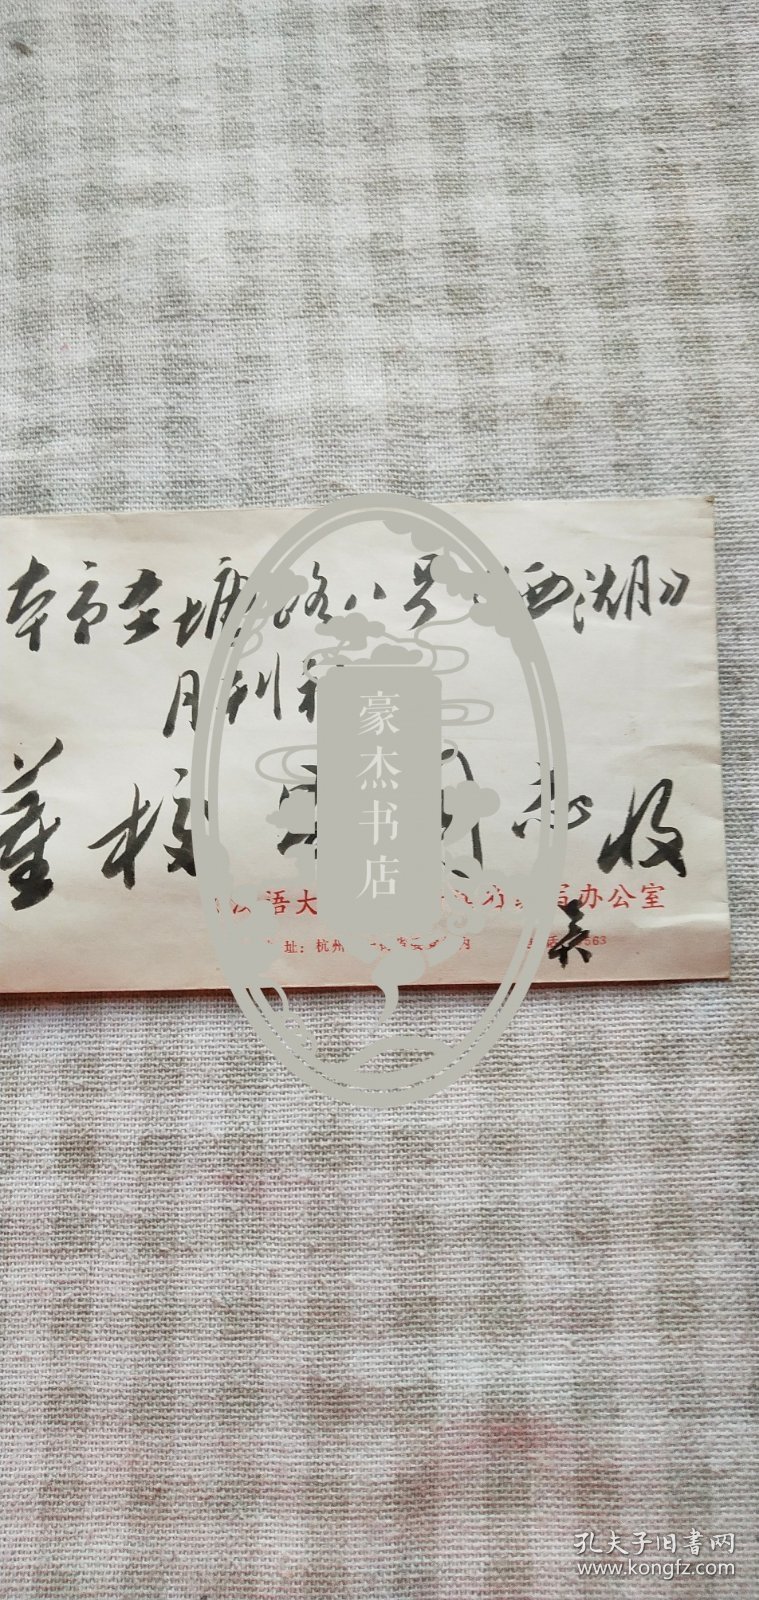 本市圣塘路八号《西湖》
月刊社
董校昌同志收
语大 办公室
址：杭州 内 563
吴
豪杰书店
孔夫子旧書网
www.kongfz.com